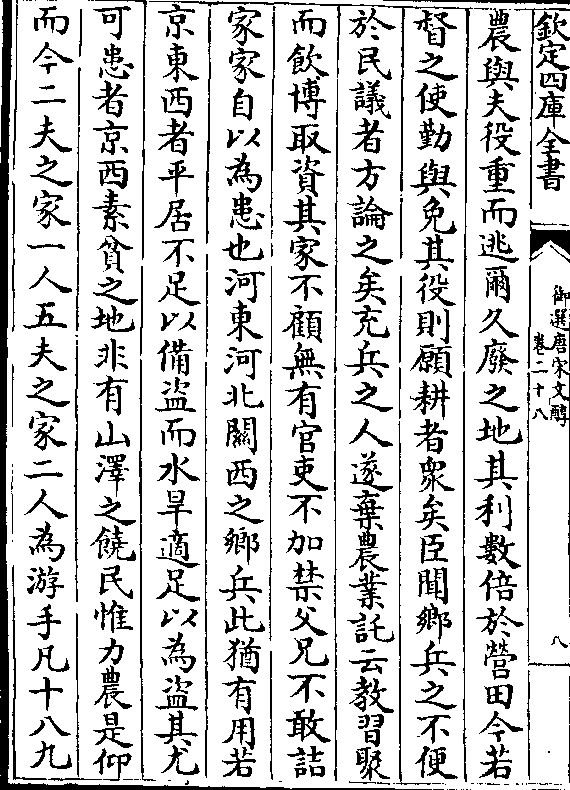 欽定四庫全書
御選唐宋文醇
卷二十八
八
農與夫役重而逃爾久廢之地其利數倍於營田今若
督之使勤與免其役則願耕者衆矣臣聞鄉兵之不便
於民議者方論之矣充兵之人遂棄農業託云教習聚
而飲博取資其家不顧無有官吏不加禁父兄不敢詰
家家自以為患也河東河北關西之鄉兵此猶有用若
京東西者平居不足以備盜而水旱適足以為盜其尤
可患者京西素貧之地非有山澤之饒民惟力農是仰
而今二夫之家一人五夫之家二人為游手凡十八九